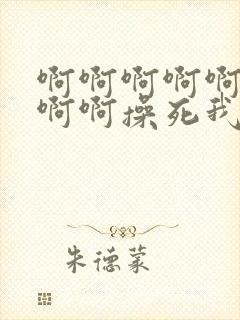 啊啊啊啊啊
啊啊操死我
朱德蒙